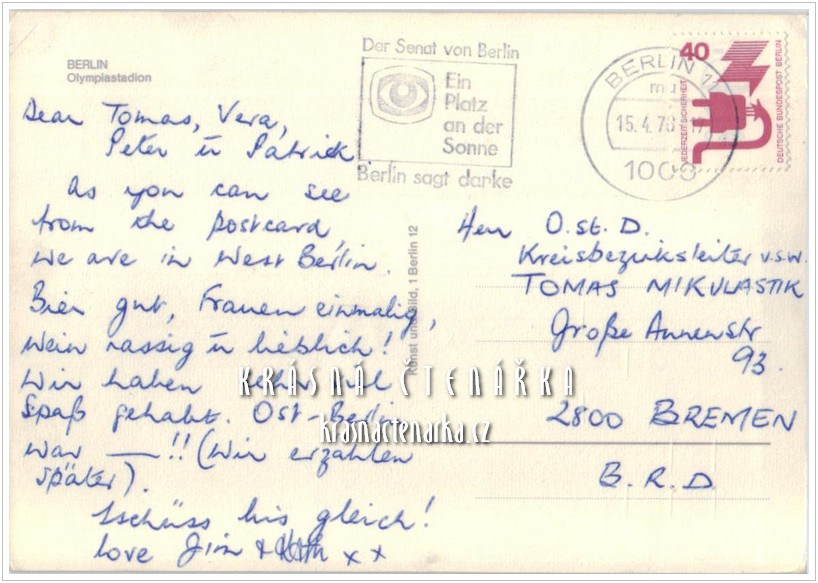 BERLIN
Olympiastadion
Der Senat von Berlin
Ein
Platz
an der
Sonne
Berlin sagt danke
BERLIN 1
15.4.78
1000
40
JEDERZEIT SICHERHEIT
DEUTSCHE BUNDESPOST BERLIN
Dear Tomas, Vera,
Peter u Patrick
As you can see
from the postcard,
we are in West Berlin.
Bier gut, Frauen einmalig,
Wein rassig u lieblich!
Wir haben sehr viel
Spaß gehabt. Ost-Berlin
war —!! (Wir erzählen
später).
Tschüss bis gleich!
love Jim + x x
Kunst und Bild, 1 Berlin 12
Herr O.St.D.
Kreisbezirksleiter u.s.w.
TOMAS MIKULASTIK
Große Annenstr
93.
2800 BREMEN
B.R.D
KRÁSNÁ ČTENÁŘKA
krasnactenarka.cz